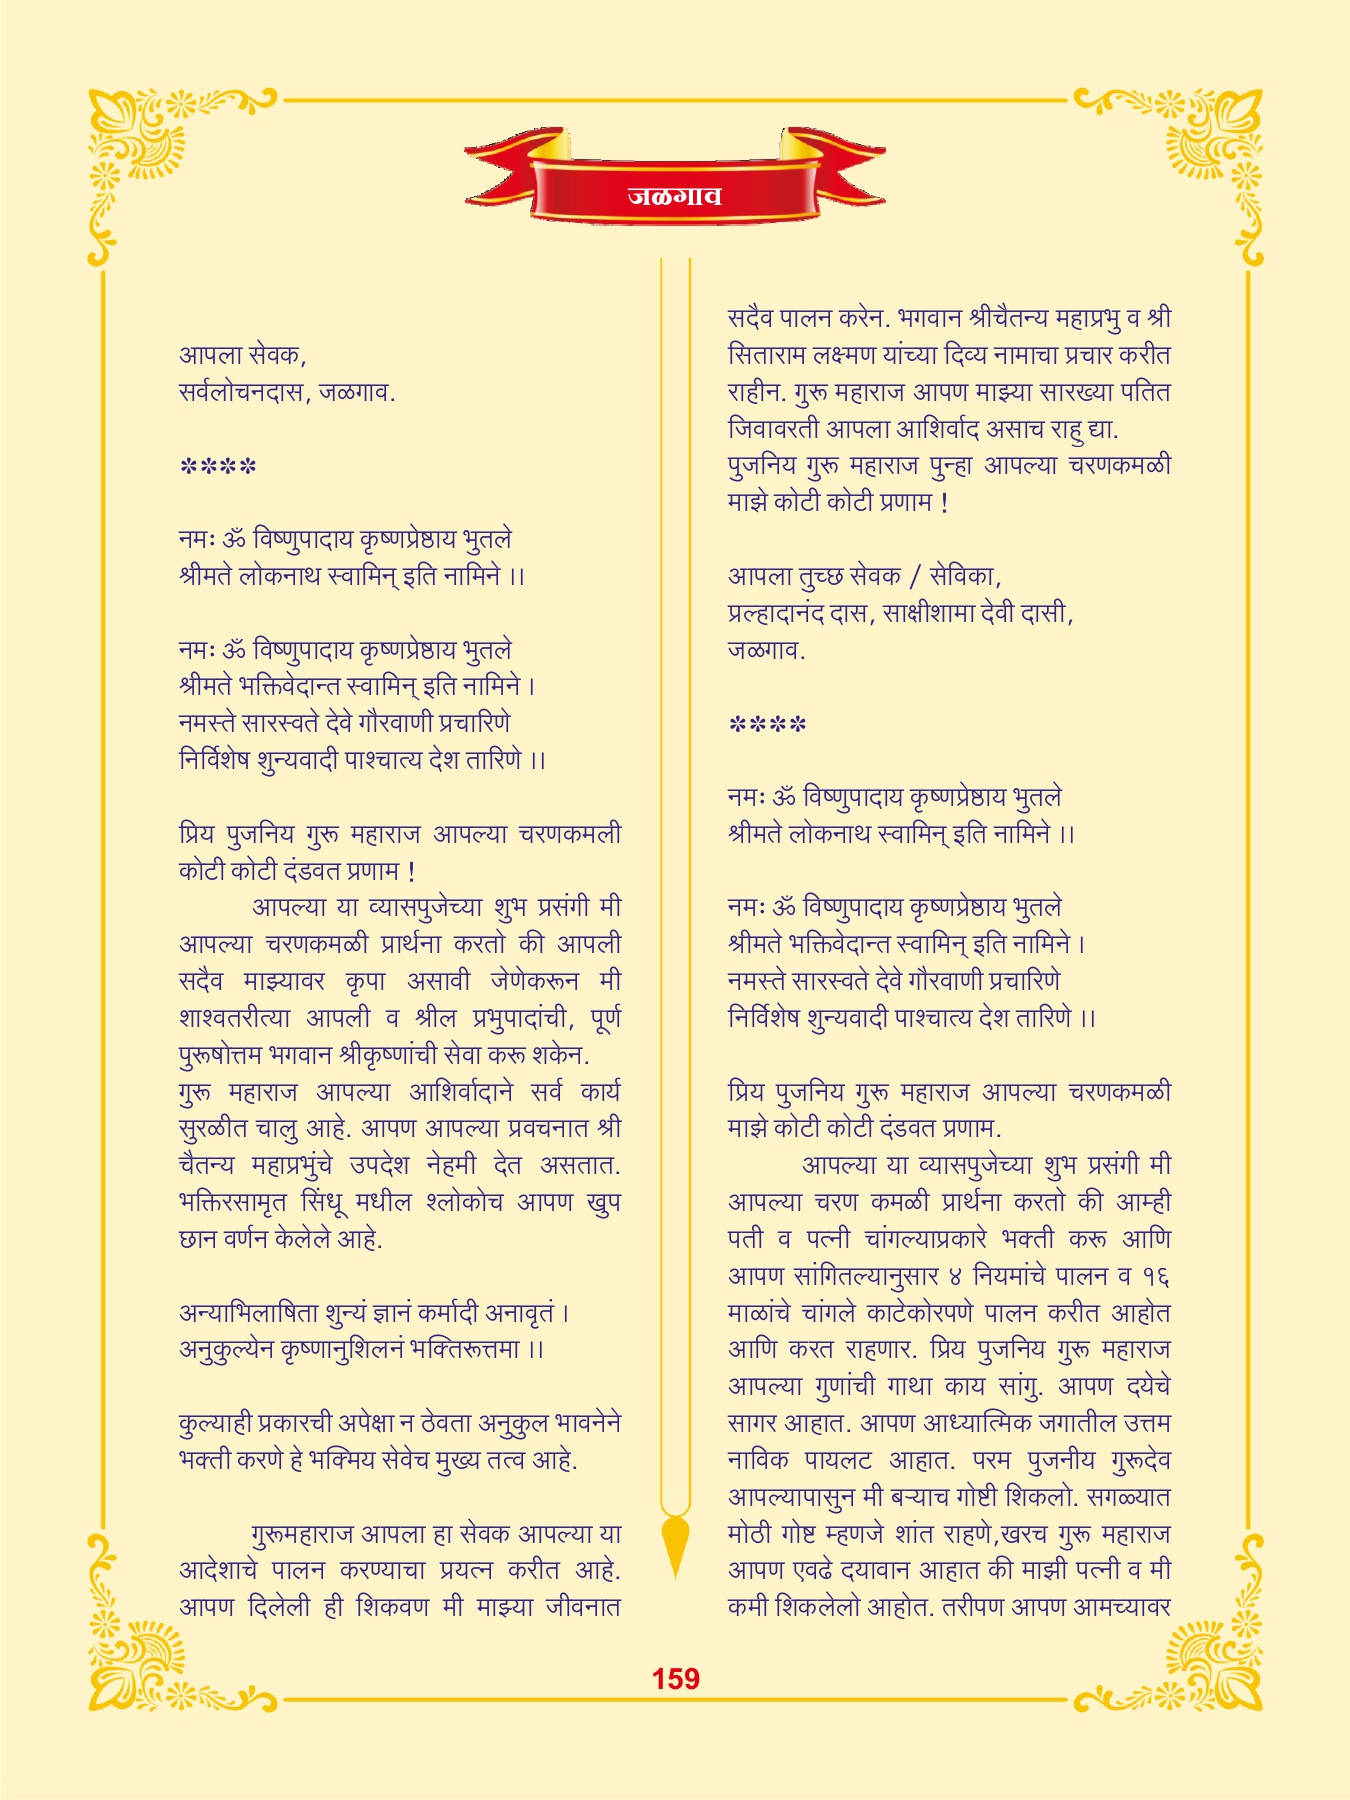 जळगाव
आपला सेवक,
सर्वलोचनदास, जळगाव.
****
नमः ॐ विष्णुपादाय कृष्णप्रेष्ठाय भुतले
श्रीमते लोकनाथ स्वामिन् इति नामिने ।।
नमः ॐ विष्णुपादाय कृष्णप्रेष्ठाय भुतले
श्रीमते भक्तिवेदान्त स्वामिन् इति नामिने ।
नमस्ते सारस्वते देवे गौरवाणी प्रचारिणे
निर्विशेष शुन्यवादी पाश्चात्य देश तारिणे ।।
प्रिय पुजनिय गुरू महाराज आपल्या चरणकमली
कोटी कोटी दंडवत प्रणाम !
आपल्या या व्यासपुजेच्या शुभ प्रसंगी मी
आपल्या चरणकमळी प्रार्थना करतो की आपली
सदैव माझ्यावर कृपा असावी जेणेकरून मी
शाश्वतरीत्या आपली व श्रील प्रभुपादांची, पूर्ण
पुरूषोत्तम भगवान श्रीकृष्णांची सेवा करू शकेन.
गुरू महाराज आपल्या आशिर्वादाने सर्व कार्य
सुरळीत चालु आहे. आपण आपल्या प्रवचनात श्री
चैतन्य महाप्रभुंचे उपदेश नेहमी देत असतात.
भक्तिरसामृत सिंधू मधील श्लोकोच आपण खुप
छान वर्णन केलेले आहे.
अन्याभिलाषिता शुन्यं ज्ञानं कर्मादी अनावृतं ।
अनुकुल्येन कृष्णानुशिलनं भक्तिरूत्तमा ।।
कुल्याही प्रकारची अपेक्षा न ठेवता अनुकुल भावनेने
भक्ती करणे हे भक्मिय सेवेच मुख्य तत्व आहे.
गुरूमहाराज आपला हा सेवक आपल्या या
आदेशाचे पालन करण्याचा प्रयत्न करीत आहे.
आपण दिलेली ही शिकवण मी माझ्या जीवनात
सदैव पालन करेन. भगवान श्रीचैतन्य महाप्रभु व श्री
सिताराम लक्ष्मण यांच्या दिव्य नामाचा प्रचार करीत
राहीन. गुरू महाराज आपण माझ्या सारख्या पतित
जिवावरती आपला आशिर्वाद असाच राहु द्या.
पुजनिय गुरू महाराज पुन्हा आपल्या चरणकमळी
माझे कोटी कोटी प्रणाम !
आपला तुच्छ सेवक / सेविका,
प्रल्हादानंद दास, साक्षीशामा देवी दासी,
जळगाव.
****
नमः ॐ विष्णुपादाय कृष्णप्रेष्ठाय भुतले
श्रीमते लोकनाथ स्वामिन् इति नामिने ।।
नमः ॐ विष्णुपादाय कृष्णप्रेष्ठाय भुतले
श्रीमते भक्तिवेदान्त स्वामिन् इति नामिने ।
नमस्ते सारस्वते देवे गौरवाणी प्रचारिणे
निर्विशेष शुन्यवादी पाश्चात्य देश तारिणे ।।
प्रिय पुजनिय गुरू महाराज आपल्या चरणकमळी
माझे कोटी कोटी दंडवत प्रणाम.
आपल्या या व्यासपुजेच्या शुभ प्रसंगी मी
आपल्या चरण कमळी प्रार्थना करतो की आम्ही
पती व पत्नी चांगल्याप्रकारे भक्ती करू आणि
आपण सांगितल्यानुसार ४ नियमांचे पालन व १६
माळांचे चांगले काटेकोरपणे पालन करीत आहोत
आणि करत राहणार. प्रिय पुजनिय गुरू महाराज
आपल्या गुणांची गाथा काय सांगु. आपण दयेचे
सागर आहात. आपण आध्यात्मिक जगातील उत्तम
नाविक पायलट आहात. परम पुजनीय गुरूदेव
आपल्यापासुन मी बऱ्याच गोष्टी शिकलो. सगळ्यात
मोठी गोष्ट म्हणजे शांत राहणे,खरच गुरू महाराज
आपण एवढे दयावान आहात की माझी पत्नी व मी
कमी शिकलेलो आहोत. तरीपण आपण आमच्यावर
159